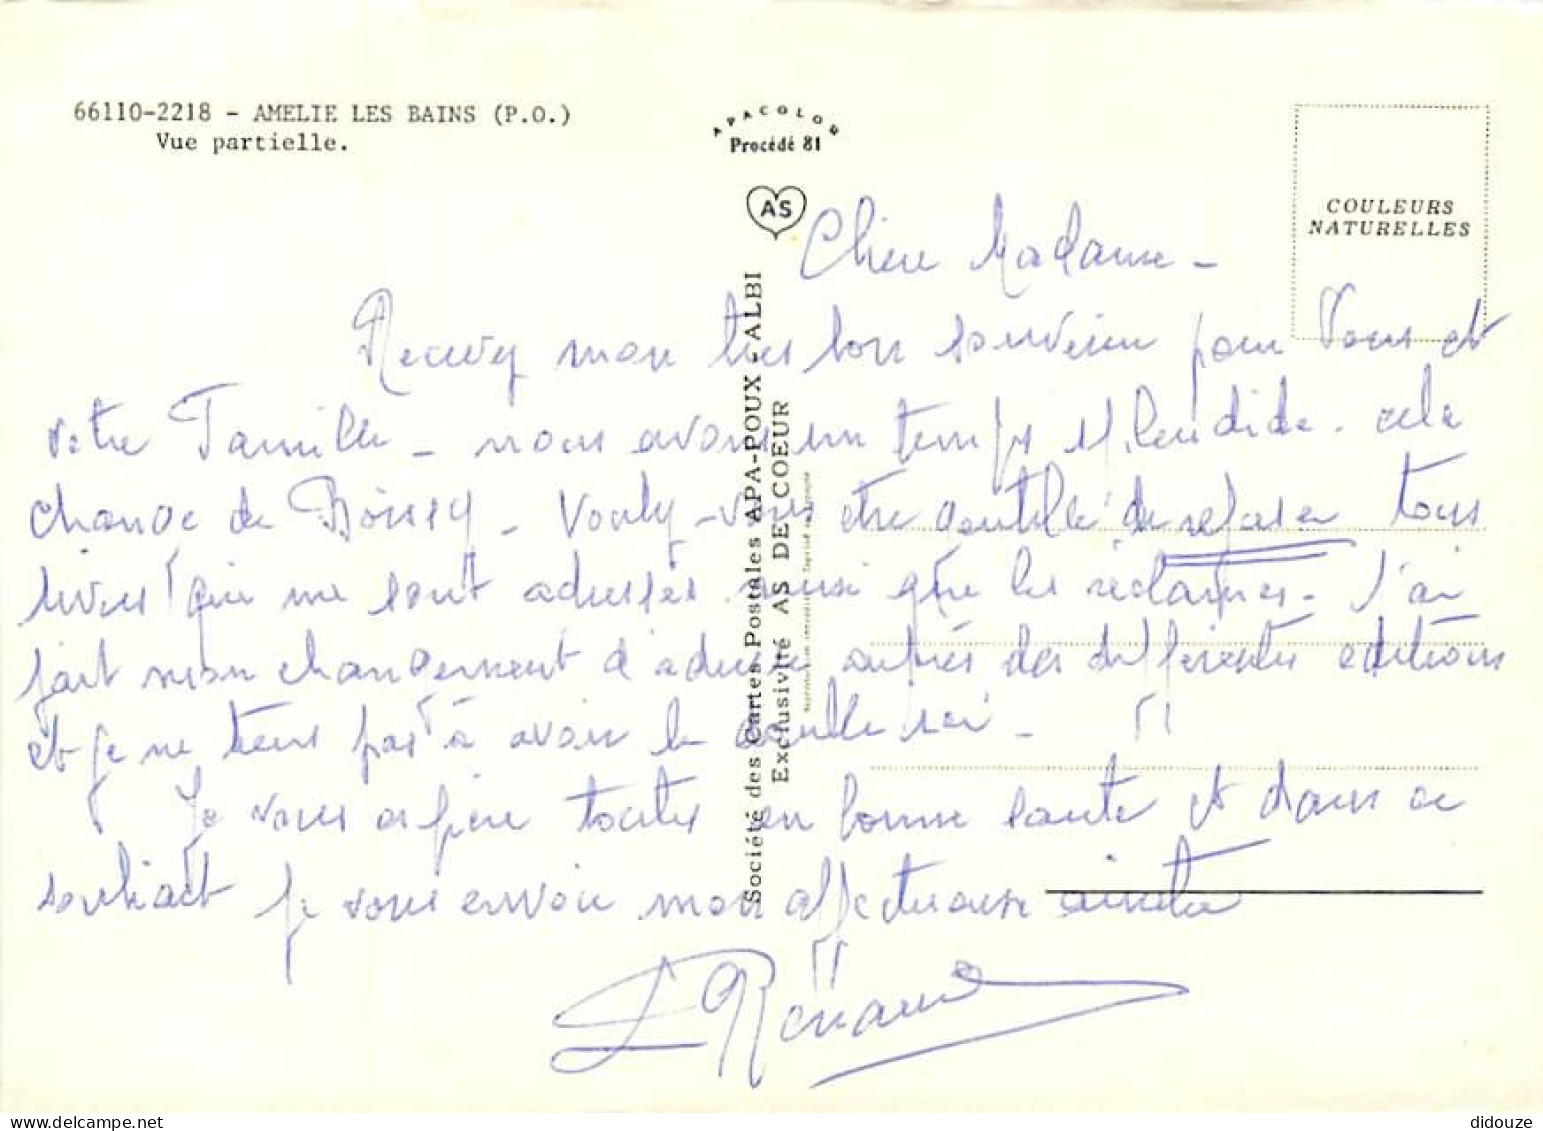 66110-2218 - AMELIE LES BAINS (P.O.)
Vue partielle.
APACOLOR
Procédé 81
AS
COULEURS
NATURELLES
Société des Cartes Postales APA-POUX - ALBI
Exclusivité AS DE COEUR
Chère Madame -
Recevez mon très bon souvenir pour Vous et
votre Famille - nous avons un temps splendide. cela
change de Boissy - Voulez-vous être gentille de refuser tous
livres qui me sont adressés ainsi que les réclames - J'ai
fait mon changement d'adresse auprès des différentes éditions
et je ne tiens pas à avoir le double ici -
Je vous espère toutes en bonne santé et dans ce
souhait je vous envoie mon affectueuse amitié
Renaud
didouze